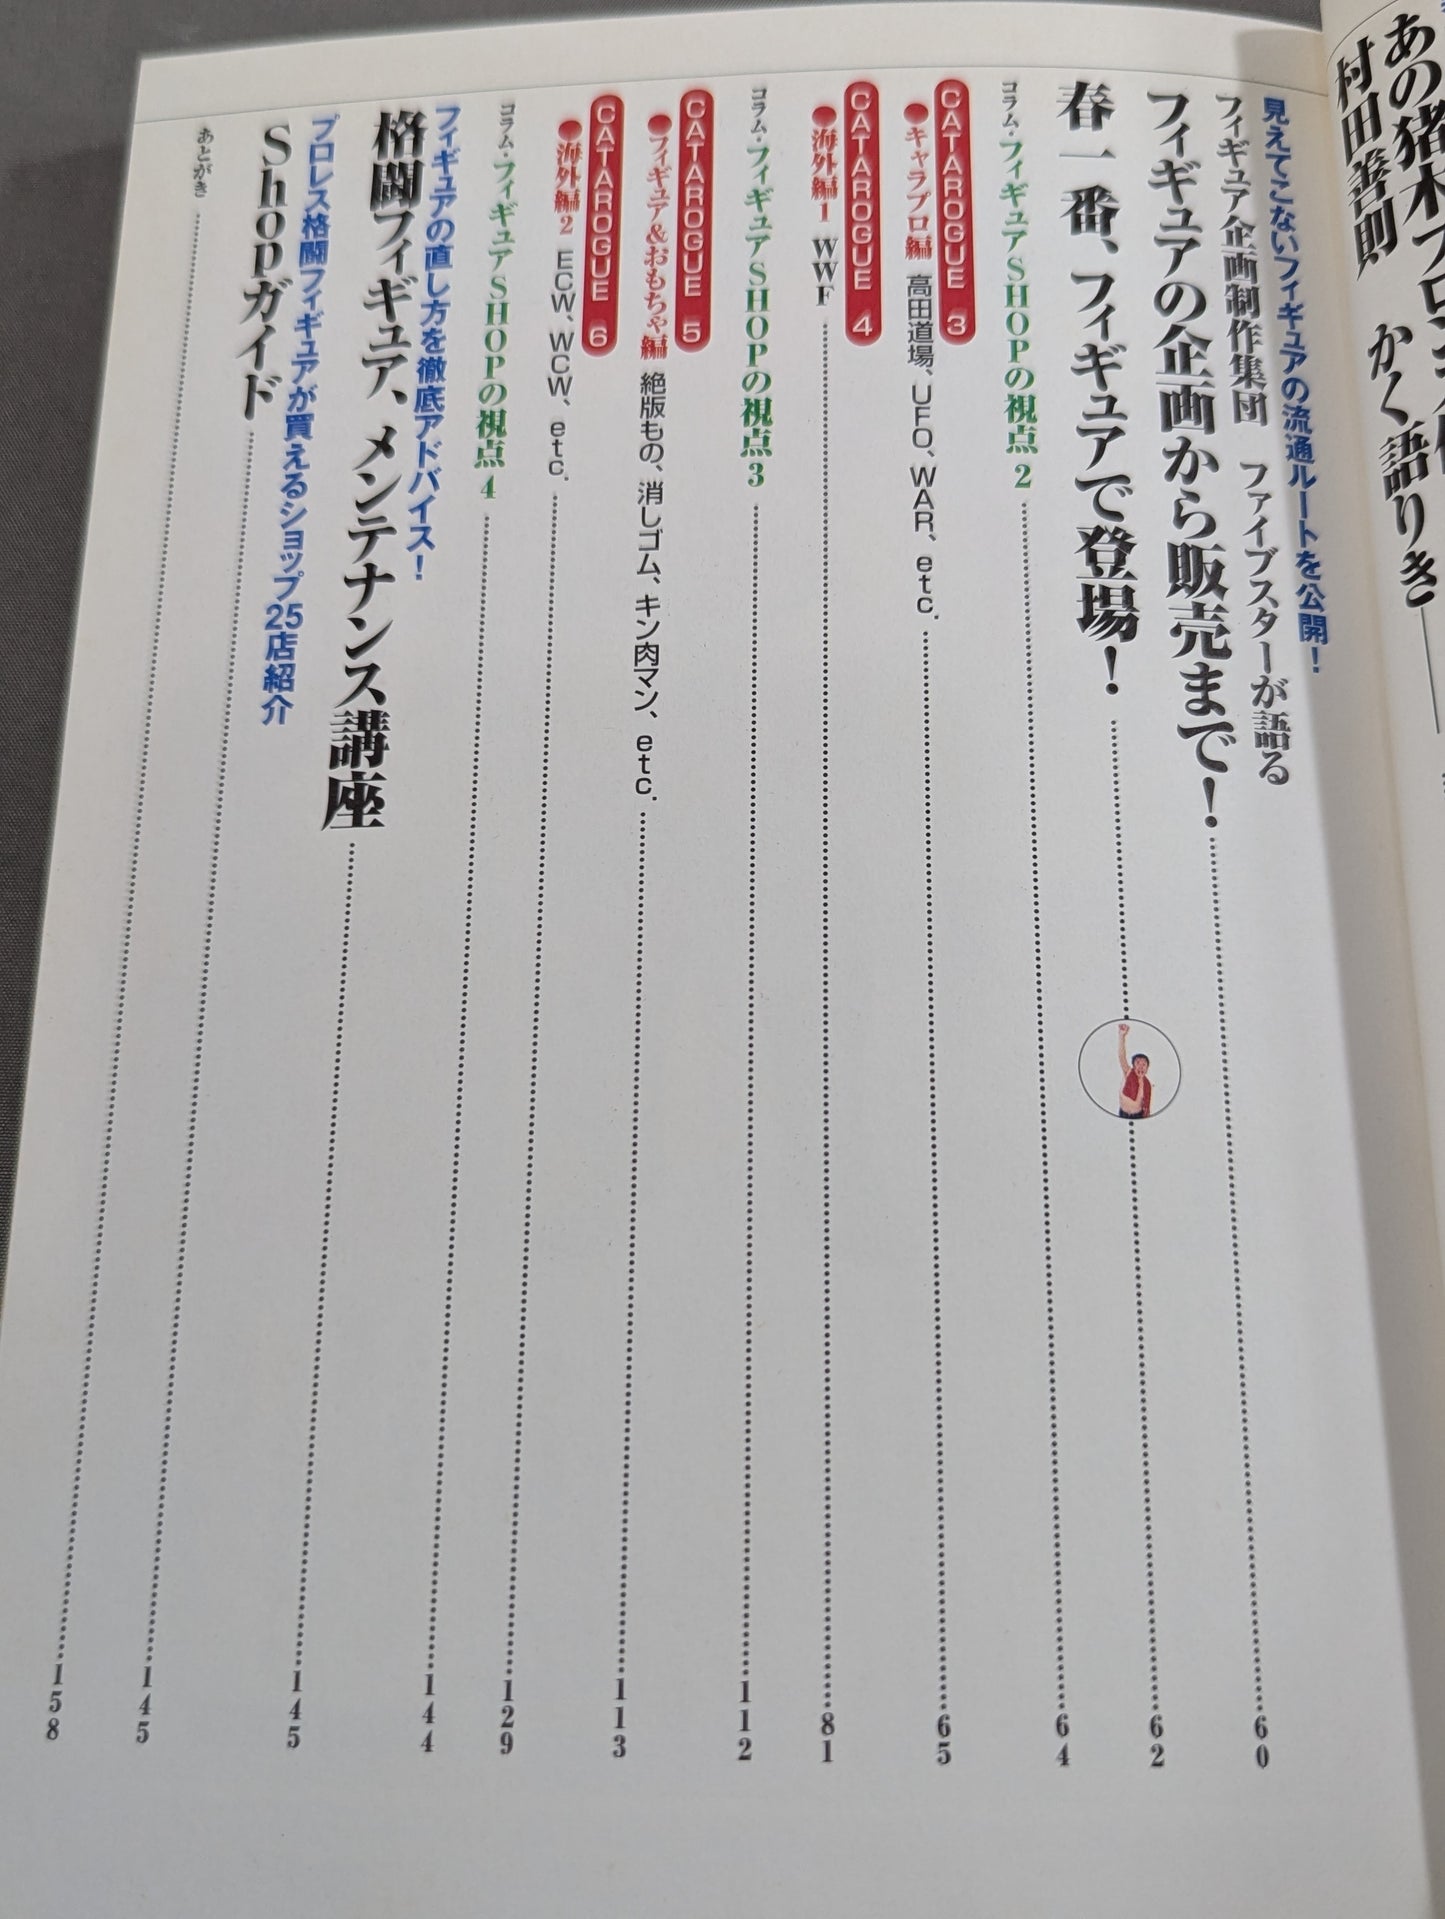 村田善則 かく語りき
見えてこないフィギュアの流通ルートを公開！
フィギュア企画制作集団 ファイブスターが語る
フィギュアの企画から販売まで！ 60
春一番、フィギュアで登場！ 62
コラム・フィギュアSHOPの視点 2 64
CATAROGUE 3
●キャラプロ編 高田道場、UFO、WAR、etc. 65
CATAROGUE 4
●海外編1 WWF 81
コラム・フィギュアSHOPの視点 3 112
CATAROGUE 5
●フィギュア&おもちゃ編 絶版もの、消しゴム、キン肉マン、etc. 113
CATAROGUE 6
●海外編2 ECW、WCW、etc. 129
コラム・フィギュアSHOPの視点 4 144
フィギュアの直し方を徹底アドバイス！
格闘フィギュア、メンテナンス講座 145
プロレス格闘フィギュアが買えるショップ25店紹介
Shopガイド 145
あとがき 158